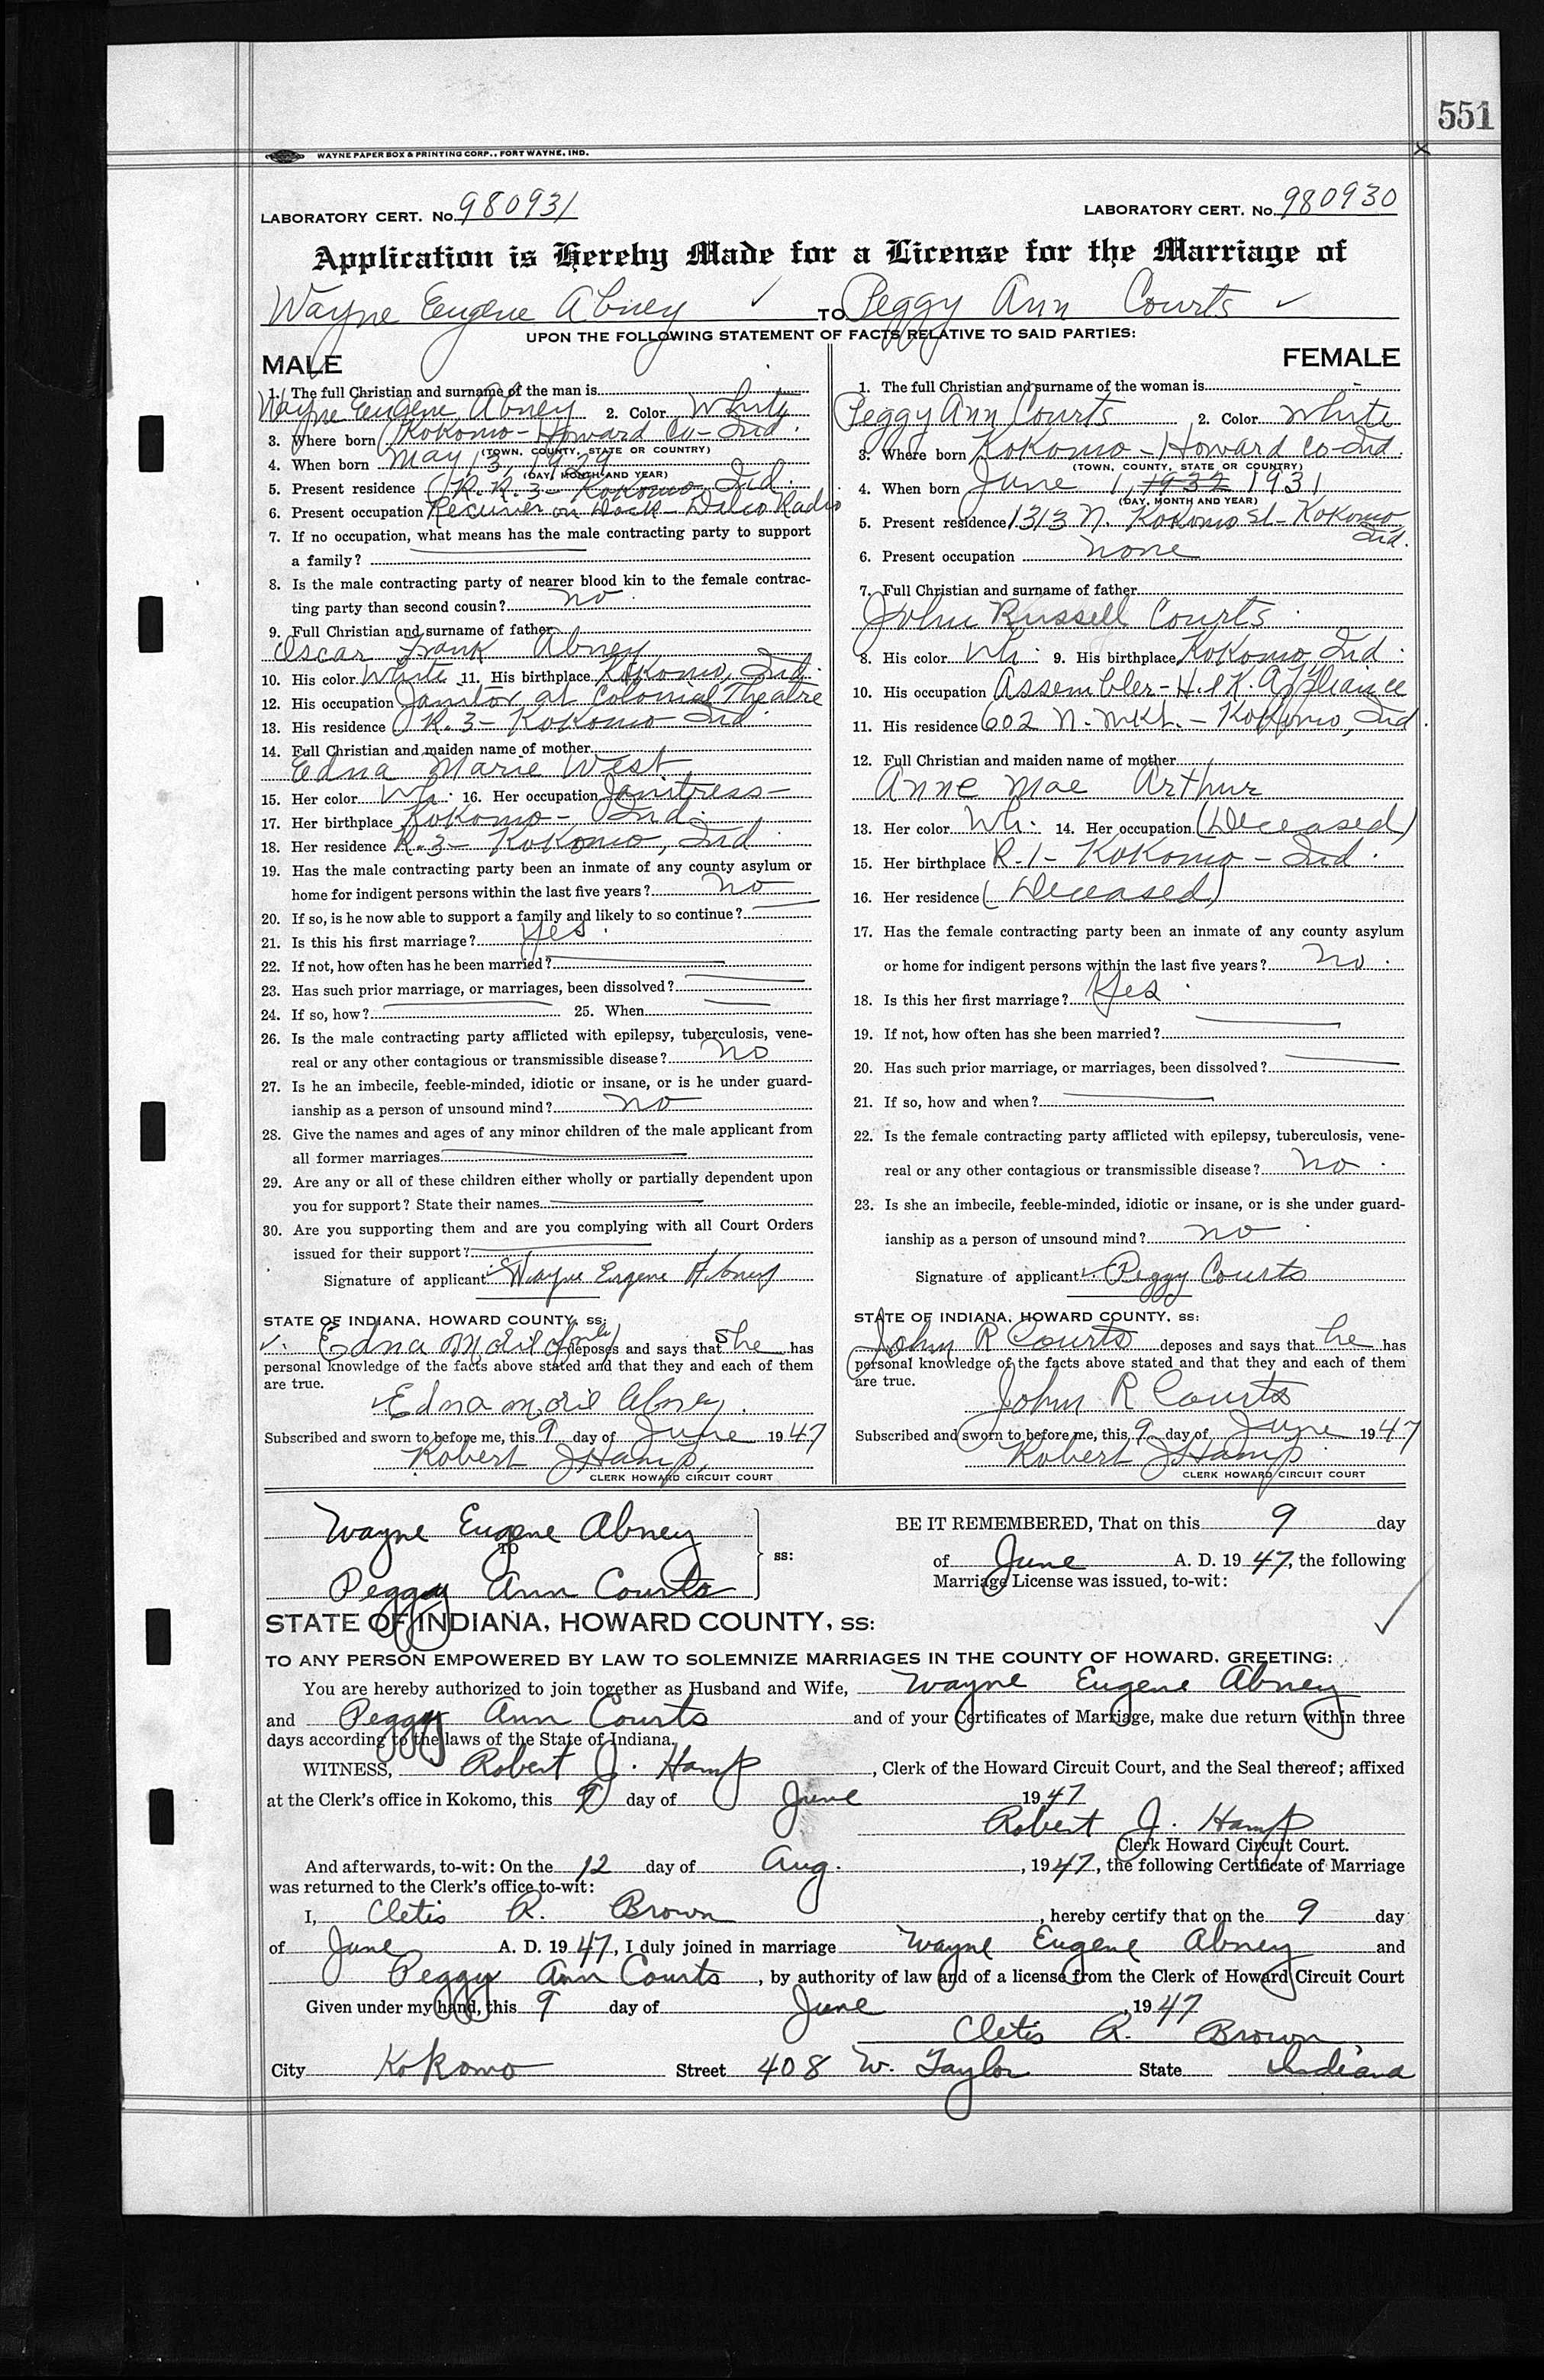 551
WAYNE PAPER BOX & PRINTING CORP., FORT WAYNE, IND.
LABORATORY CERT. No. 980931
LABORATORY CERT. No. 980930
Application is Hereby Made for a License for the Marriage of
Wayne Eugene Abney TO Peggy Ann Courts
UPON THE FOLLOWING STATEMENT OF FACTS RELATIVE TO SAID PARTIES:
MALE
1. The full Christian and surname of the man is
Wayne Eugene Abney 2. Color White
3. Where born Kokomo - Howard Co - Ind.
(TOWN, COUNTY, STATE OR COUNTRY)
4. When born May 13, 1929
(DAY, MONTH AND YEAR)
5. Present residence R.R. 3 - Kokomo, Ind.
6. Present occupation Receiver on Dock - Delco Radio
7. If no occupation, what means has the male contracting party to support
a family?
8. Is the male contracting party of nearer blood kin to the female contrac-
ting party than second cousin? no
9. Full Christian and surname of father
Oscar Frank Abney
10. His color White 11. His birthplace Kokomo, Ind.
12. His occupation Janitor at Colonial Theatre
13. His residence R. 3 - Kokomo Ind.
14. Full Christian and maiden name of mother
Edna Marie West
15. Her color Wh. 16. Her occupation Janitress -
17. Her birthplace Kokomo - Ind.
18. Her residence R. 3 - Kokomo, Ind.
19. Has the male contracting party been an inmate of any county asylum or
home for indigent persons within the last five years? no
20. If so, is he now able to support a family and likely to so continue?
21. Is this his first marriage? Yes.
22. If not, how often has he been married?
23. Has such prior marriage, or marriages, been dissolved?
24. If so, how? 25. When
26. Is the male contracting party afflicted with epilepsy, tuberculosis, vene-
real or any other contagious or transmissible disease? no
27. Is he an imbecile, feeble-minded, idiotic or insane, or is he under guard-
ianship as a person of unsound mind? no
28. Give the names and ages of any minor children of the male applicant from
all former marriages
29. Are any or all of these children either wholly or partially dependent upon
you for support? State their names
30. Are you supporting them and are you complying with all Court Orders
issued for their support?
Signature of applicant Wayne Eugene Abney
STATE OF INDIANA, HOWARD COUNTY, ss:
Edna Marie Abney deposes and says that she has
personal knowledge of the facts above stated and that they and each of them
are true.
Edna Marie Abney
Subscribed and sworn to before me, this 9 day of June 1947
Robert J Hamp,
CLERK HOWARD CIRCUIT COURT
FEMALE
1. The full Christian and surname of the woman is
Peggy Ann Courts 2. Color White
3. Where born Kokomo - Howard Co - Ind.
(TOWN, COUNTY, STATE OR COUNTRY)
4. When born June 1, 1932 1931
(DAY, MONTH AND YEAR)
5. Present residence 1313 N. Kokomo St - Kokomo
Ind.
6. Present occupation none
7. Full Christian and surname of father
John Russell Courts
8. His color Wh. 9. His birthplace Kokomo, Ind.
10. His occupation Assembler - H. & K. Appliance
11. His residence 602 N. Mkt. - Kokomo, Ind.
12. Full Christian and maiden name of mother
Anne Mae Arthur
13. Her color Wh. 14. Her occupation (Deceased)
15. Her birthplace R. 1 - Kokomo - Ind.
16. Her residence (Deceased)
17. Has the female contracting party been an inmate of any county asylum
or home for indigent persons within the last five years? no.
18. Is this her first marriage? Yes
19. If not, how often has she been married?
20. Has such prior marriage, or marriages, been dissolved?
21. If so, how and when?
22. Is the female contracting party afflicted with epilepsy, tuberculosis, vene-
real or any other contagious or transmissible disease? no
23. Is she an imbecile, feeble-minded, idiotic or insane, or is she under guard-
ianship as a person of unsound mind? no
Signature of applicant Peggy Courts
STATE OF INDIANA, HOWARD COUNTY, ss:
John R Courts deposes and says that he has
personal knowledge of the facts above stated and that they and each of them
are true.
John R Courts
Subscribed and sworn to before me, this 9 day of June 1947
Robert J Hamp
CLERK HOWARD CIRCUIT COURT
Wayne Eugene Abney
TO
Peggy Ann Courts
ss:
BE IT REMEMBERED, That on this 9 day
of June A. D. 1947, the following
Marriage License was issued, to-wit:
STATE OF INDIANA, HOWARD COUNTY, ss:
TO ANY PERSON EMPOWERED BY LAW TO SOLEMNIZE MARRIAGES IN THE COUNTY OF HOWARD, GREETING:
You are hereby authorized to join together as Husband and Wife, Wayne Eugene Abney
and Peggy Ann Courts and of your Certificates of Marriage, make due return within three
days according to the laws of the State of Indiana.
WITNESS, Robert J. Hamp, Clerk of the Howard Circuit Court, and the Seal thereof; affixed
at the Clerk's office in Kokomo, this 9 day of June 1947
Robert J. Hamp
Clerk Howard Circuit Court.
And afterwards, to-wit: On the 12 day of Aug., 1947, the following Certificate of Marriage
was returned to the Clerk's office to-wit:
I, Cletis R. Brown, hereby certify that on the 9 day
of June A. D. 1947, I duly joined in marriage Wayne Eugene Abney and
Peggy Ann Courts, by authority of law and of a license from the Clerk of Howard Circuit Court
Given under my hand, this 9 day of June, 1947
Cletis R. Brown
City Kokomo Street 408 W. Taylor State Indiana